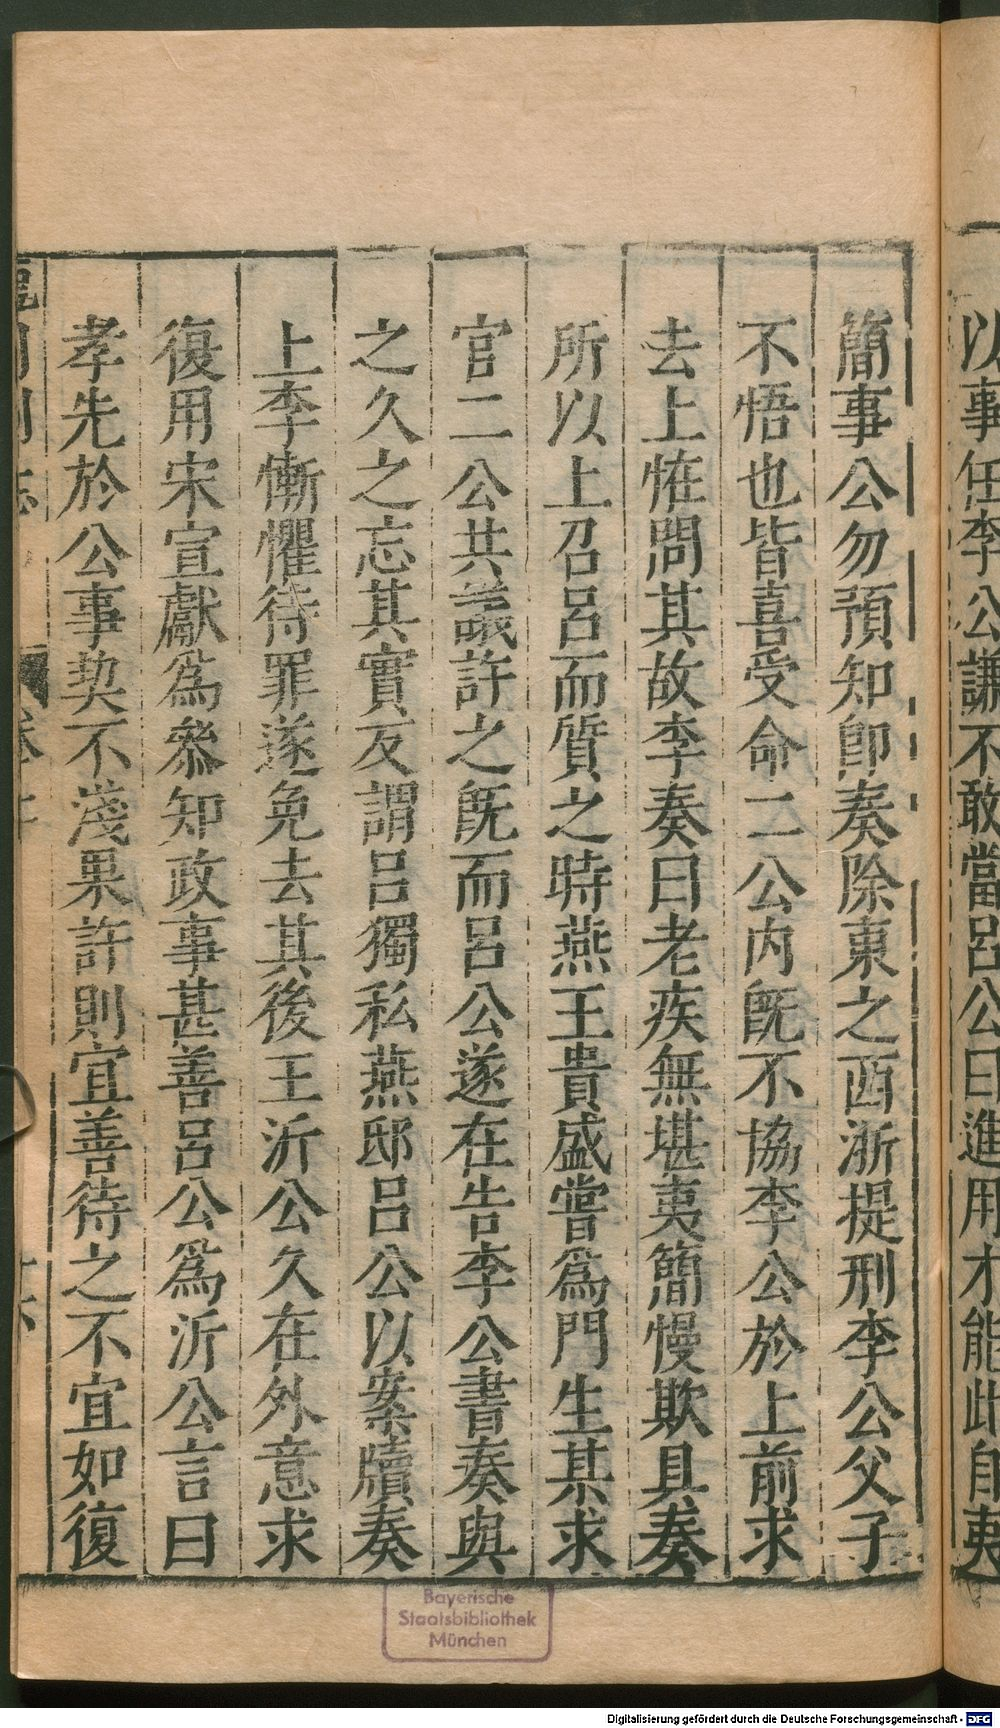 以事任李公謙不敢當呂公曰進用才能此自夷
簡事公勿預知卽奏除東之西浙提刑李公父子
不悟也皆喜受命二公內旣不協李公於上前求
去上恠問其故李奏曰老疾無堪夷簡慢欺具奏
所以上召呂而質之時燕王貴盛嘗爲門生某求
官二公共議許之旣而呂公遂在告李公書奏與
之久之忘其實反謂呂獨私燕邸呂公以案牘奏
上李慚懼待罪遂免去其後王沂公久在外意求
復用宋宣獻爲叅知政事甚善呂公爲沂公言曰
孝先於公事契不淺果許則宜善待之不宜如復
Bayerische
Staatsbibliothek
München
Digitalisierung gefördert durch die Deutsche Forschungsgemeinschaft - DFG